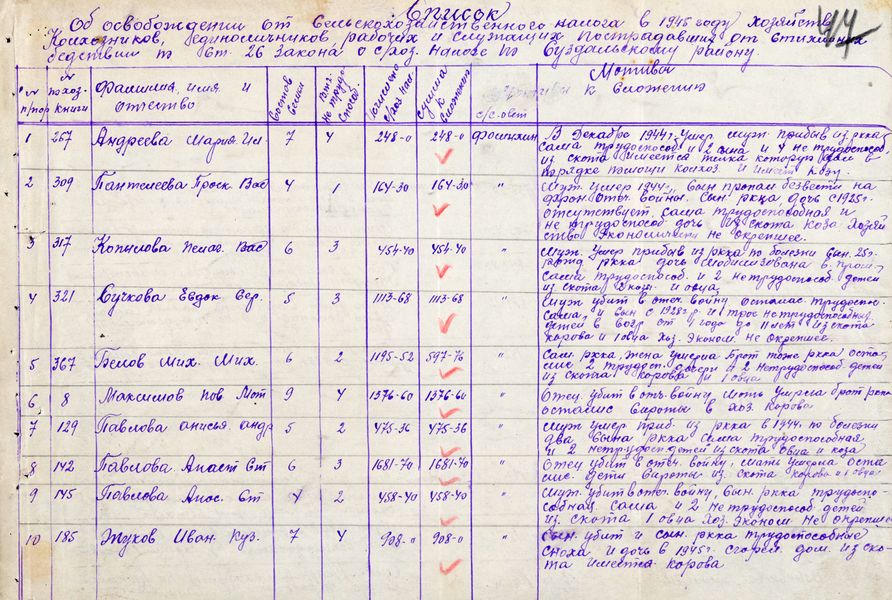 Список
Об освобождении от сельскохозяйственного налога в 1945 году хозяйств
Колхозников, единоличников рабочих и служащих пострадавших от стихийных
бедствий по ст. 26 Закона о с/хоз. налоге по Суздальскому району.
44
№ п/пор
№ по хоз. книги
Фамилия, имя и отчество
Состав семьи
Вт.ч. не трудо способ.
Начислено с/хоз нал.
Сумма к сложению
с/совет
Мотивы к сложению
1 267 Андреева Мария Ил. 7 4 248-0 248-0 В Декабре 1944г. умер муж прибыв из ркка
сама трудоспособ и 2 сына и 4 не трудоспособ.
из скота имеется телка которую дал в
порядке помощи колхоз и имеет козу
2 309 Пантелеева Проск Вас 4 1 164-30 164-30 " муж умер 1944г., сын пропал безвести на
фрон. отеч. войны. сын ркка дочь с 1925г.
отсутствует, сама трудоспособная и
не трудоспособ дочь из скота коза хозяй
ство экономически не окрепшее.
3 317 Копылова Пелаг. Вас 6 3 454-40 454-40 " муж умер прибыв из ркка по болезни сын. 25г.
рожд ркка дочь мобилизована в пром.
сама трудоспособ. и 2 нетрудоспособ детей
из скота и овца
4 321 Сучкова Евдок Сер. 5 3 1113-68 1113-68 " муж убит в отеч. войну, осталась трудоспос-
сама, и сын с 1928г.р. и трое нетрудоспособных
детей в возр от 4 года до 11 лет из скота
корова и 1 овца хоз. эконом не окрепшее.
5 367 Белов Мих. Мих. 6 2 1195-52 597-76 " сам ркка, жена умерла брат тоже ркка оста-
лис 2 трудосп. дочери и 2 нетрудоспособ детей
из скота корова и 1 овца
6 8 Максимов Пов Мат 9 4 1376-60 1376-60 " Отец убит в отч. войну, мать умерла брат ркка
остались сироты в хоз. корова
7 129 Павлова Анисья Андр 5 2 475-36 475-36 " муж умер приб. из ркка в 1944г. по болезни
два сына ркка сама трудоспособная
и 2 нетрудосп детей из скота овца и коза
8 142 Павлова Анаст Ст 6 3 1681-70 1681-70 " Отец убит в отеч. войну, мать умерла оста
лис. дети сироты из скота корова и 1 овца
9 145 Павлова Анас. Ст 4 2 458-40 458-40 " муж. убит в отеч. войну, сын. ркка трудоспо-
собная сама и 2 не трудоспособ детей
из. скота 1 овца хоз. эконом не окрепшее
10 185 Жуков Иван Куз. 7 4 908-0 908-0 " Сын. убит и сын. ркка трудоспособные
сноха и дочь в 1945г. сгорел дом. из ско-
та имеется корова